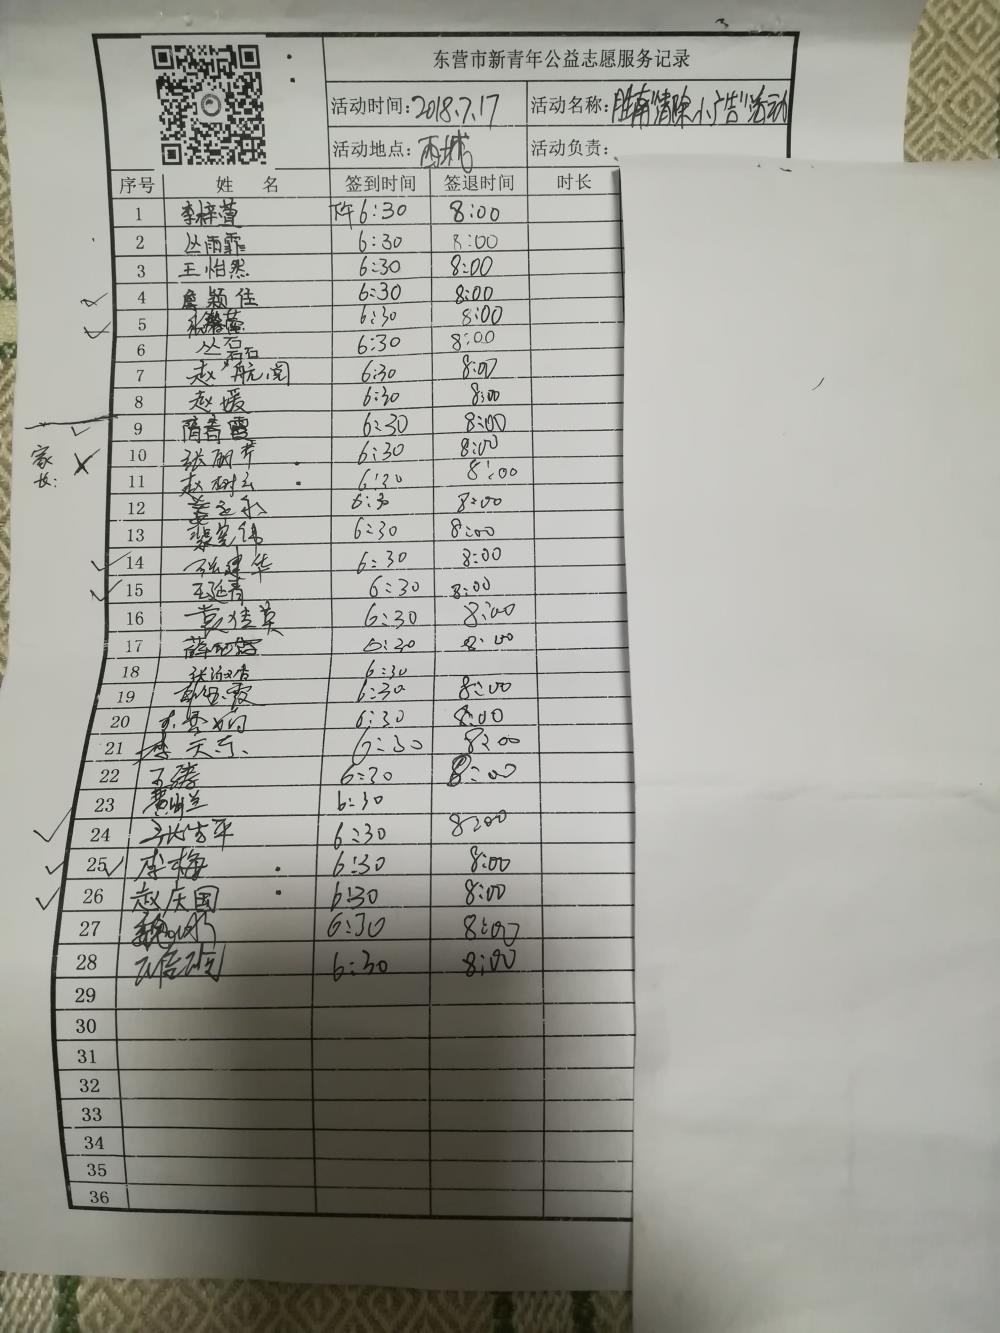 东营市新青年公益志愿服务记录
活动时间:2018.7.17 活动名称:胜南"清除小广告"活动
活动地点:西城 活动负责:
序号 姓名 签到时间 签退时间 时长
1 李梓萱 下午6:30 8:00
2 丛雨霏 6:30 8:00
3 王怡然 6:30 8:00
4 詹颖佳 6:30 8:00
5 6:30 8:00
6 丛磊 6:30 8:00
7 赵航 6:30 8:00
8 赵媛 6:30 8:00
9 隋春霞 6:30 8:00
家长:
10 张丽芹 6:30 8:00
11 赵树云 6:30 8:00
12 6:30 8:00
13 6:30 8:00
14 张建华 6:30 8:00
15 王延青 6:30 8:00
16 6:30 8:00
17 薛 6:30 8:00
18 张 6:30
19 霞 6:30 8:00
20 6:30 8:00
21 李 6:30 8:00
22 王 6:30 8:00
23 黄 兰 6:30
24 平 6:30 8:00
25 李梅 6:30 8:00
26 赵庆国 6:30 8:00
27 魏 6:30 8:00
28 6:30 8:00
29
30
31
32
33
34
35
36